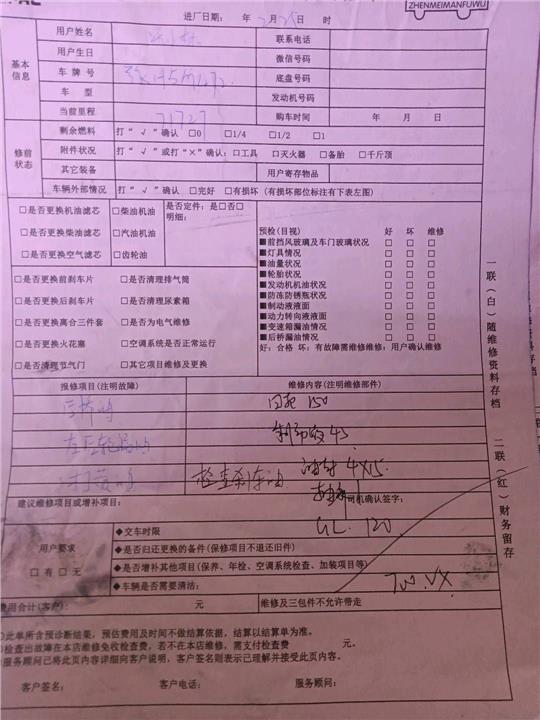 ZHENMEIMANFUWU
进厂日期： 年 2 月 25 日 时
基本信息
用户姓名 联系电话
用户生日 微信号码
车 牌 号 底盘号码
车 型 发动机号码
当前里程 71727 购车时间 年 月 日
修前状态
剩余燃料 打“ √ ”确认 □0 □1/4 □1/2 □1
附件状况 打“ √ ”或打“×”确认：□工具 □灭火器 □备胎 □千斤顶
其它装备 用户寄存物品
车辆外部情况 打“ √ ”确认 □完好 □有损坏（有损坏部位标注有下表左图）
□是否更换机油滤芯 □柴油机油 是否定件：是□否□
明细：
□是否更换柴油滤芯 □汽油机油
□是否更换空气滤芯 □齿轮油
预检(目视) 好 坏 维修
■前挡风玻璃及车门玻璃状况 □ □ □
■灯具情况 □ □ □
■油量状况 □ □ □
■轮胎状况 □ □ □
■发动机机油状况 □ □ □
■防冻防锈瓶状况 □ □ □
■制动液液面 □ □ □
■动力转向液液面 □ □ □
■变速箱漏油情况 □ □ □
■后桥漏油情况 □ □ □
好：合格 坏：有故障需维修维修：用户确认维修
□是否更换前刹车片 □是否清理排气筒
□是否更换后刹车片 □是否清理尿素箱
□是否更换离合三件套 □是否为电气维修
□是否更换火花塞 □空调系统是否正常运行
□是否清理节气门 □其它项目维修及更换
报修项目(注明故障) 维修内容(注明维修部件)
150
45
检查刹车油 4X15
建议维修项目或增补项目： 司机确认签字：
120
用户要求
□有□无
◆交车时限
◆是否归还更换的备件（保修项目不退还旧件）
◆是否增补其他项目(保养、年检、空调系统检查、加装项目等)
◆车辆是否需要清洁:
费用合计(客户)： 元 维修及三包件不允许带走
此单所含预诊断结果，预估费用及时间不做结算依据，结算以结算单为准。
检查出故障在本店维修免收检查费，若不在本店维修，需支付检查费 元。
服务顾问已将此页内容详细向客户说明，客户签名则表示已理解并接受此页内容。
客户签名： 客户电话： 服务顾问：
一联（白）随维修资料存档
二联（红）财务留存